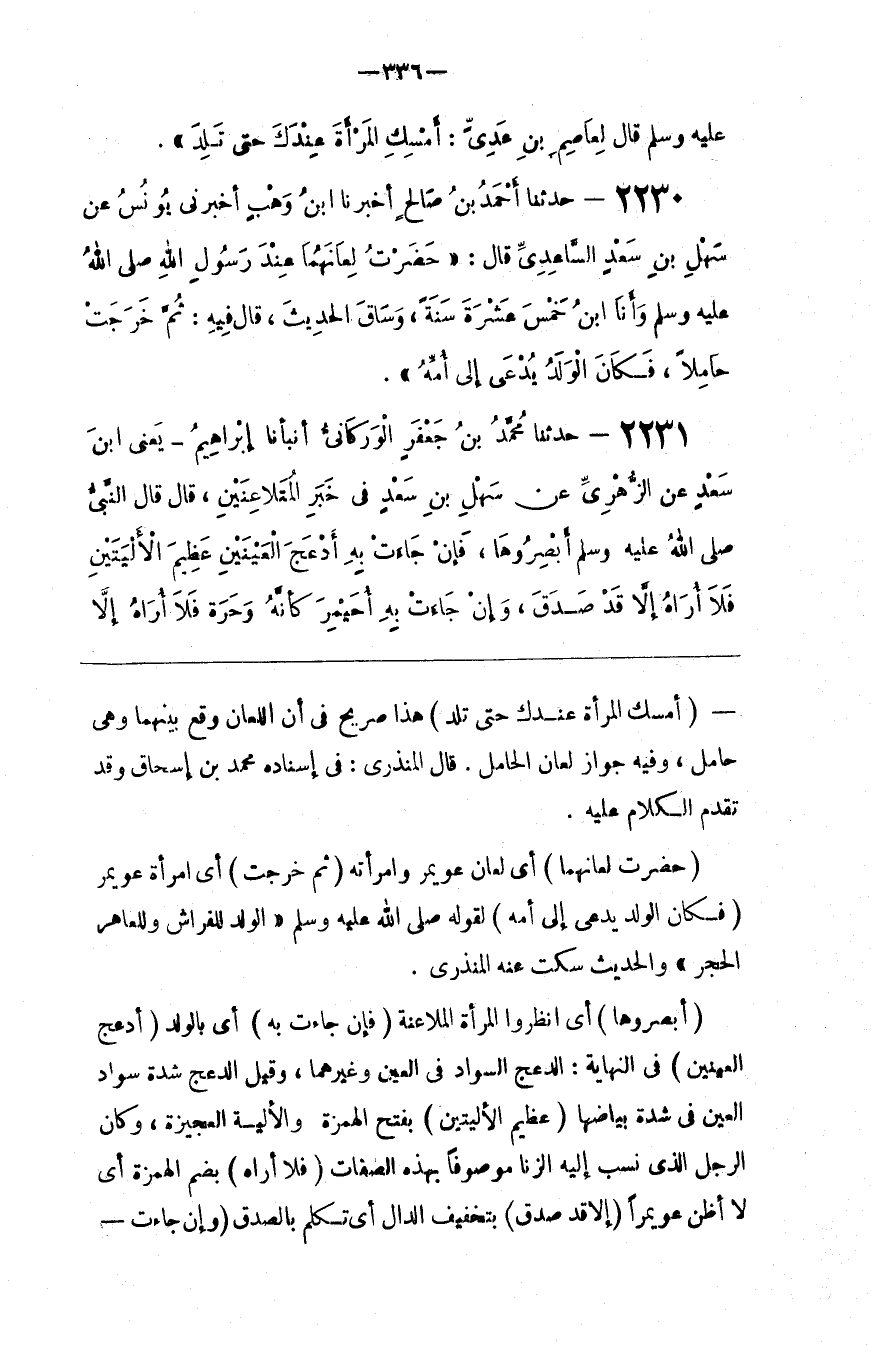 —٣٣٦—
عليه وسلم قال لِعَاصِمِ بنِ عَدِىٍّ : أَمْسِكِ المَرْأَةَ عِنْدَكَ حتى تَـلِدَ » .
٢٢٣٠ — حدثنا أَحْمَدُ بنُ صَالحٍ أخبرنا ابنُ وَهْبٍ أخبرنى يُونُسُ عن
سَهْلِ بنِ سَعْدٍ السَّاعِدِىِّ قال : « حَضَرْتُ لِعَانَهُمَا عِنْدَ رَسُولِ اللهِ صلى اللهُ
عليه وسلم وَأَنَا ابنُ خَمْسَ عَشْرَةَ سَنَةً ، وَسَاقَ الحديثَ ، قال فِيهِ : ثُمَّ خَرَجَتْ
حَامِلاً ، فَـكَانَ الْوَلَدُ يُدْعَى إلى أُمِّهُ » .
٢٢٣١ — حدثنا مُحمَّدُ بنُ جَعْفَرٍ الْوَرَكَانىُّ أنبأنا إِبْراهِيمُ ـ يَعنى ابنَ
سَعْدٍ عن الزُّهْرِىِّ عن سَهْلِ بنِ سَعْدٍ فى خَبَرِ المُتَلاَعِنَيْنِ ، قال قال النَّبىُّ
صلى اللهُ عليه وسلم أَبْصِرُوهَا ، فَإنْ جَاءَتْ بِهِ أَدْعَجَ الْعَيْنَيْنِ عَظِيمَ الْأَلْيَتَيْنِ
فَلاَ أُرَاهُ إلَّا قَدْ صَـدَقَ ، وَإنْ جَاءَتْ بِهِ أُحَيْمِرَ كَأنَّهُ وَحَرَة فَلاَ أُرَاهُ إلَّا
— ( أمسك المرأة عنـدك حتى تلد ) هذا صريح فى أن اللعان وقع بينهما وهى
حامل ، وفيه جواز لعان الحامل . قال المنذرى : فى إسناده محمد بن إسحاق وقد
تقدم الـكلام عليه .
( حضرت لعانهما ) أى لعان عويمر وامرأته ( ثم خرجت ) أى امرأة عويمر
( فـكان الولد يدعى إلى أمه ) لقوله صلى الله عليه وسلم « الولد للفراش وللعاهر
الحجر » والحديث سكت عنه المنذرى .
( أبصروها ) أى انظروا المرأة الملاعنة ( فإن جاءت به ) أى بالولد ( أدعج
العينين ) فى النهاية : الدعج السواد فى العين وغيرهما ، وقيل الدعج شدة سواد
العين فى شدة بياضها ( عظيم الأليتين ) بفتح الهمزة والأليـة العجيزة ، وكان
الرجل الذى نسب إليه الزنا موصوفاً بهذه الصفات ( فلا أراه ) بضم الهمزة أى
لا أظن عويمراً ( إلا قد صدق ) بتخفيف الدال أى تـكلم بالصدق ( وإن جاءت —